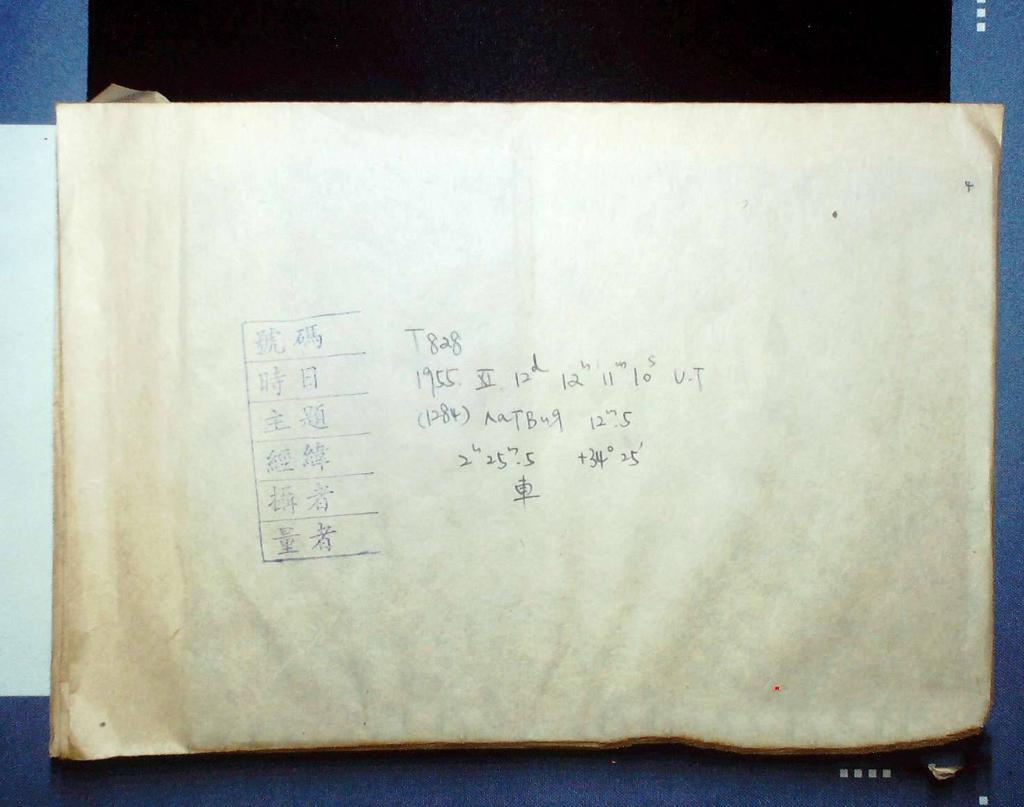 4
號碼 T828
時日 1955. XI. 12ᵈ 12ʰ 11ᵐ 10ˢ U.T
主題 (1284) ЛаТВия 12ᵐ.5
經緯 2ʰ 25ᵐ.5 +34° 25′
攝者 車
量者